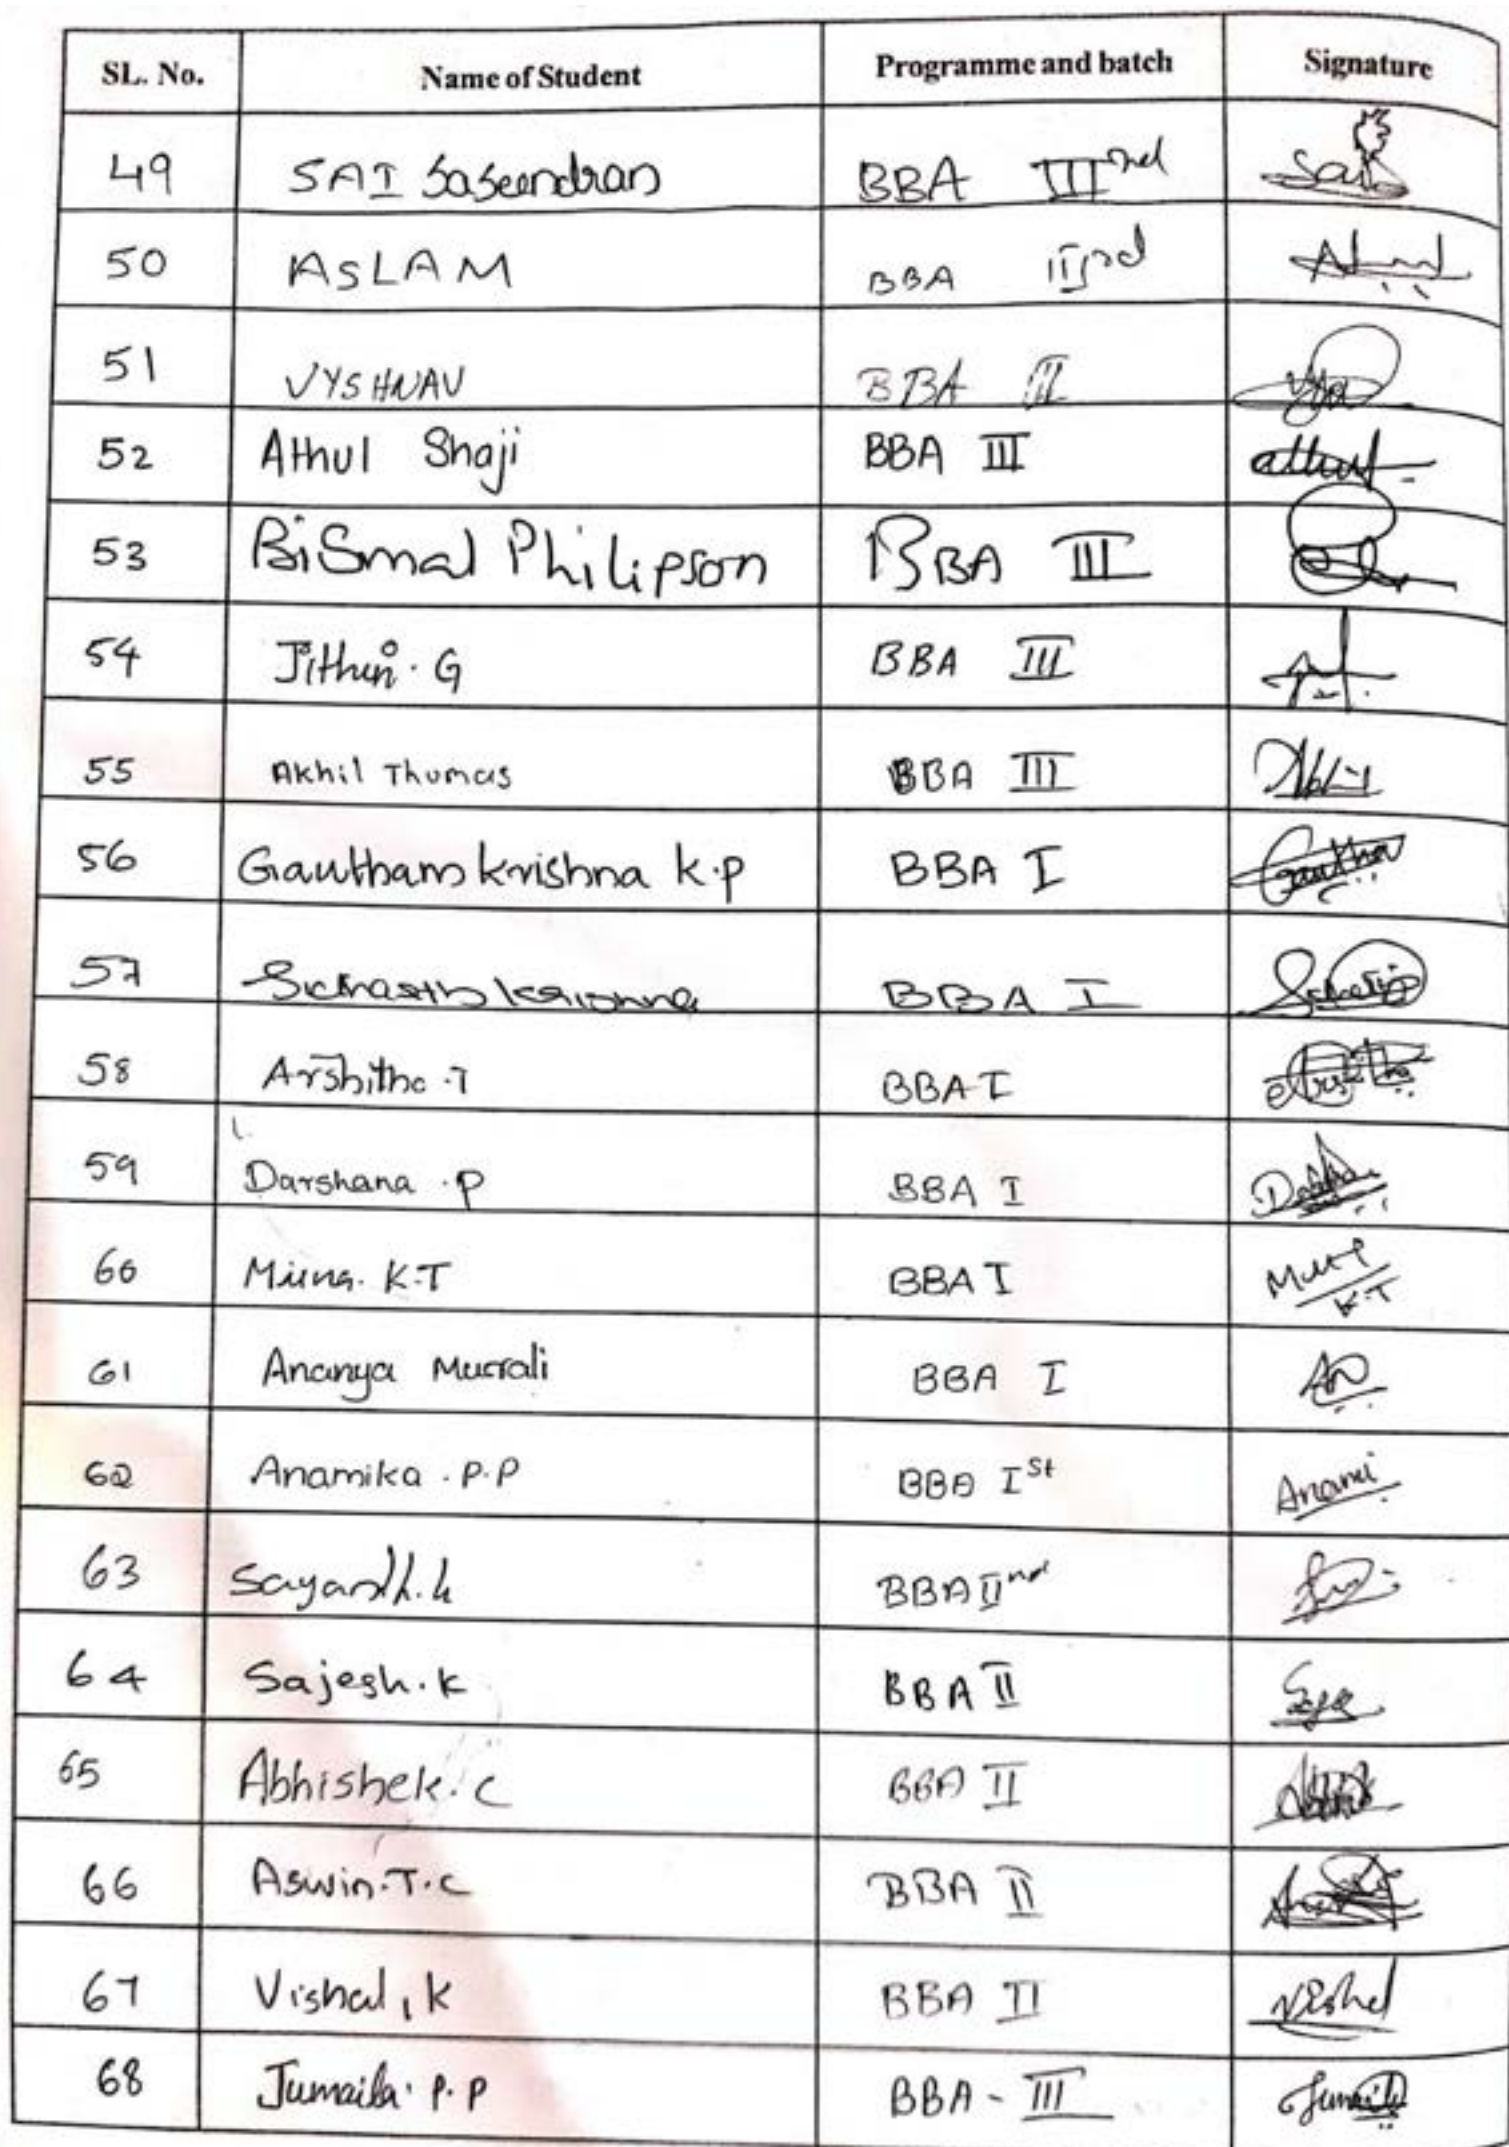 SL. No. Name of Student Programme and batch Signature
49 SAI Saseendran BBA IIIrd Sai
50 ASLAM BBA IIIrd
51 VYSHNAV BBA III
52 Athul Shaji BBA III athul
53 BiSmal Philipson BBA III
54 Jithin. G BBA III
55 Akhil Thomas BBA III
56 Gautham krishna k.p BBA I Gautha
57 BBA I
58 Arshitha .T BBA I
59 Darshana .P BBA I
60 K.T BBA I K.T
61 Ananya Murali BBA I
62 Anamika . P.P BBA Ist Anami
63 BBA IInd
64 Sajesh. K BBA II
65 Abhishek. C BBA II
66 Aswin. T. C BBA II
67 Vishal, K BBA II Vishal
68 Jumaila. P. P BBA - III Jumaila